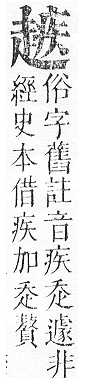 俗字舊註音疾走遽非
經史本借疾加走贅